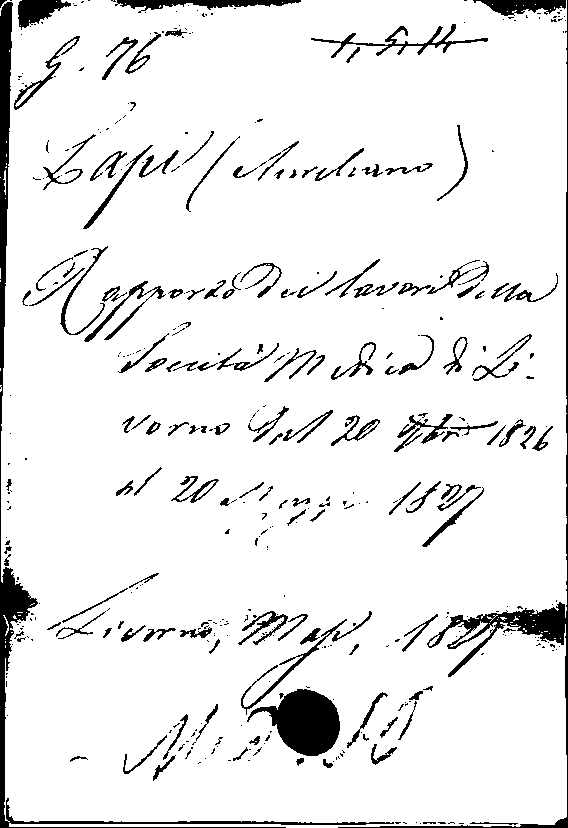 G. 76 1, 5, 14
Lapi (Aureliano)
Rapporto dei lavori della
Società Medica di Li-
vorno dal 20 9bre 1826
al 20 Maggio 1827
Livorno, Masi, 1827